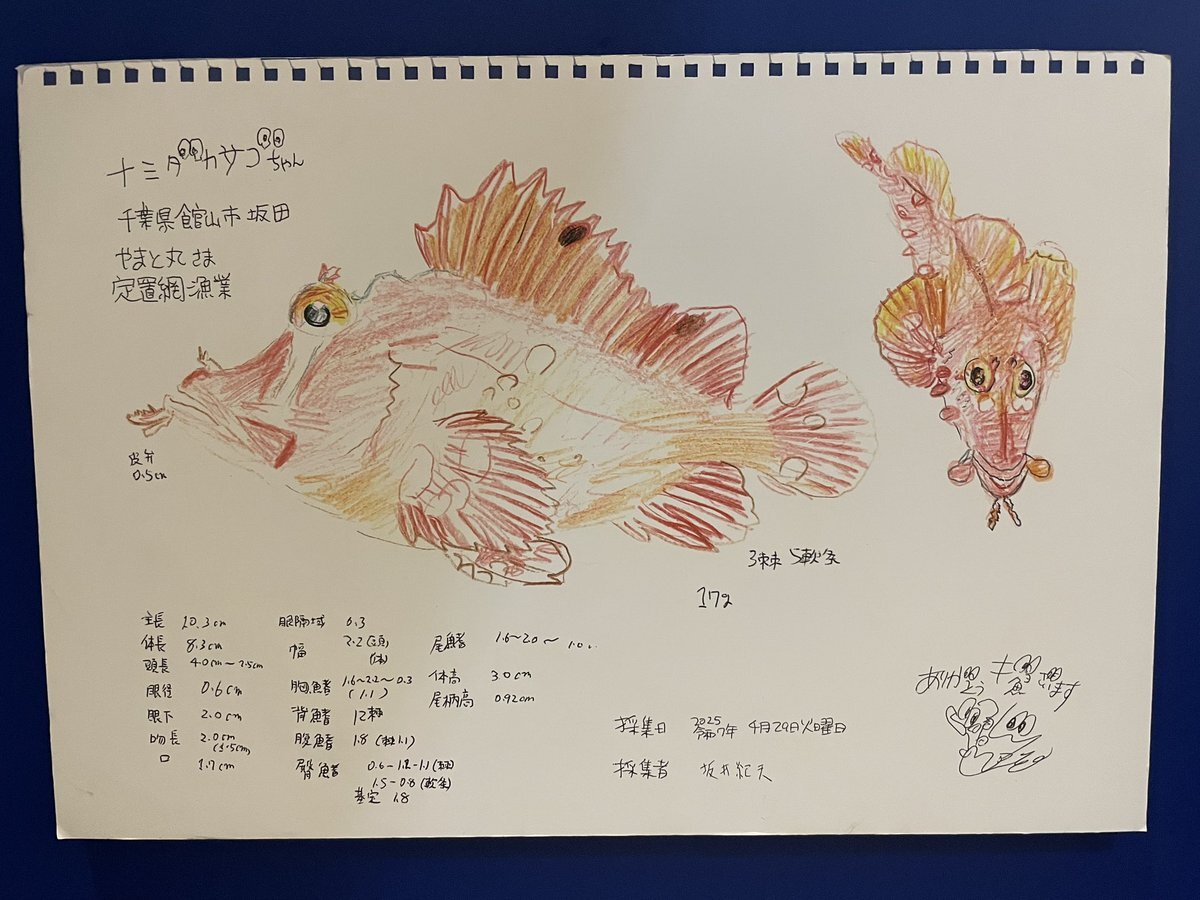 ナミダカサゴちゃん
千葉県館山市坂田
やまと丸さま
定置網漁業
皮弁
0.5cm
3棘 5軟条
17g
全長 10.3cm
体長 8.3cm
頭長 4.0cm〜2.5cm
眼径 0.6cm
眼下 2.0cm
吻長 2.0cm
(1.5cm)
口 1.7cm
眼隔域 0.3
幅 2.2(頭)
(体)
胸鰭 1.6〜2.2〜0.3
(1.1)
背鰭 12棘
腹鰭 1.8 (棘1.1)
臀鰭 0.6-1.2-1.1(棘)
1.5-0.8(軟条)
基底 1.8
尾鰭 1.6〜2.0〜1.0
体高 3.0cm
尾柄高 0.92cm
採集日 2025 令和7年 4月29日火曜日
採集者
ありがとうギョざいます